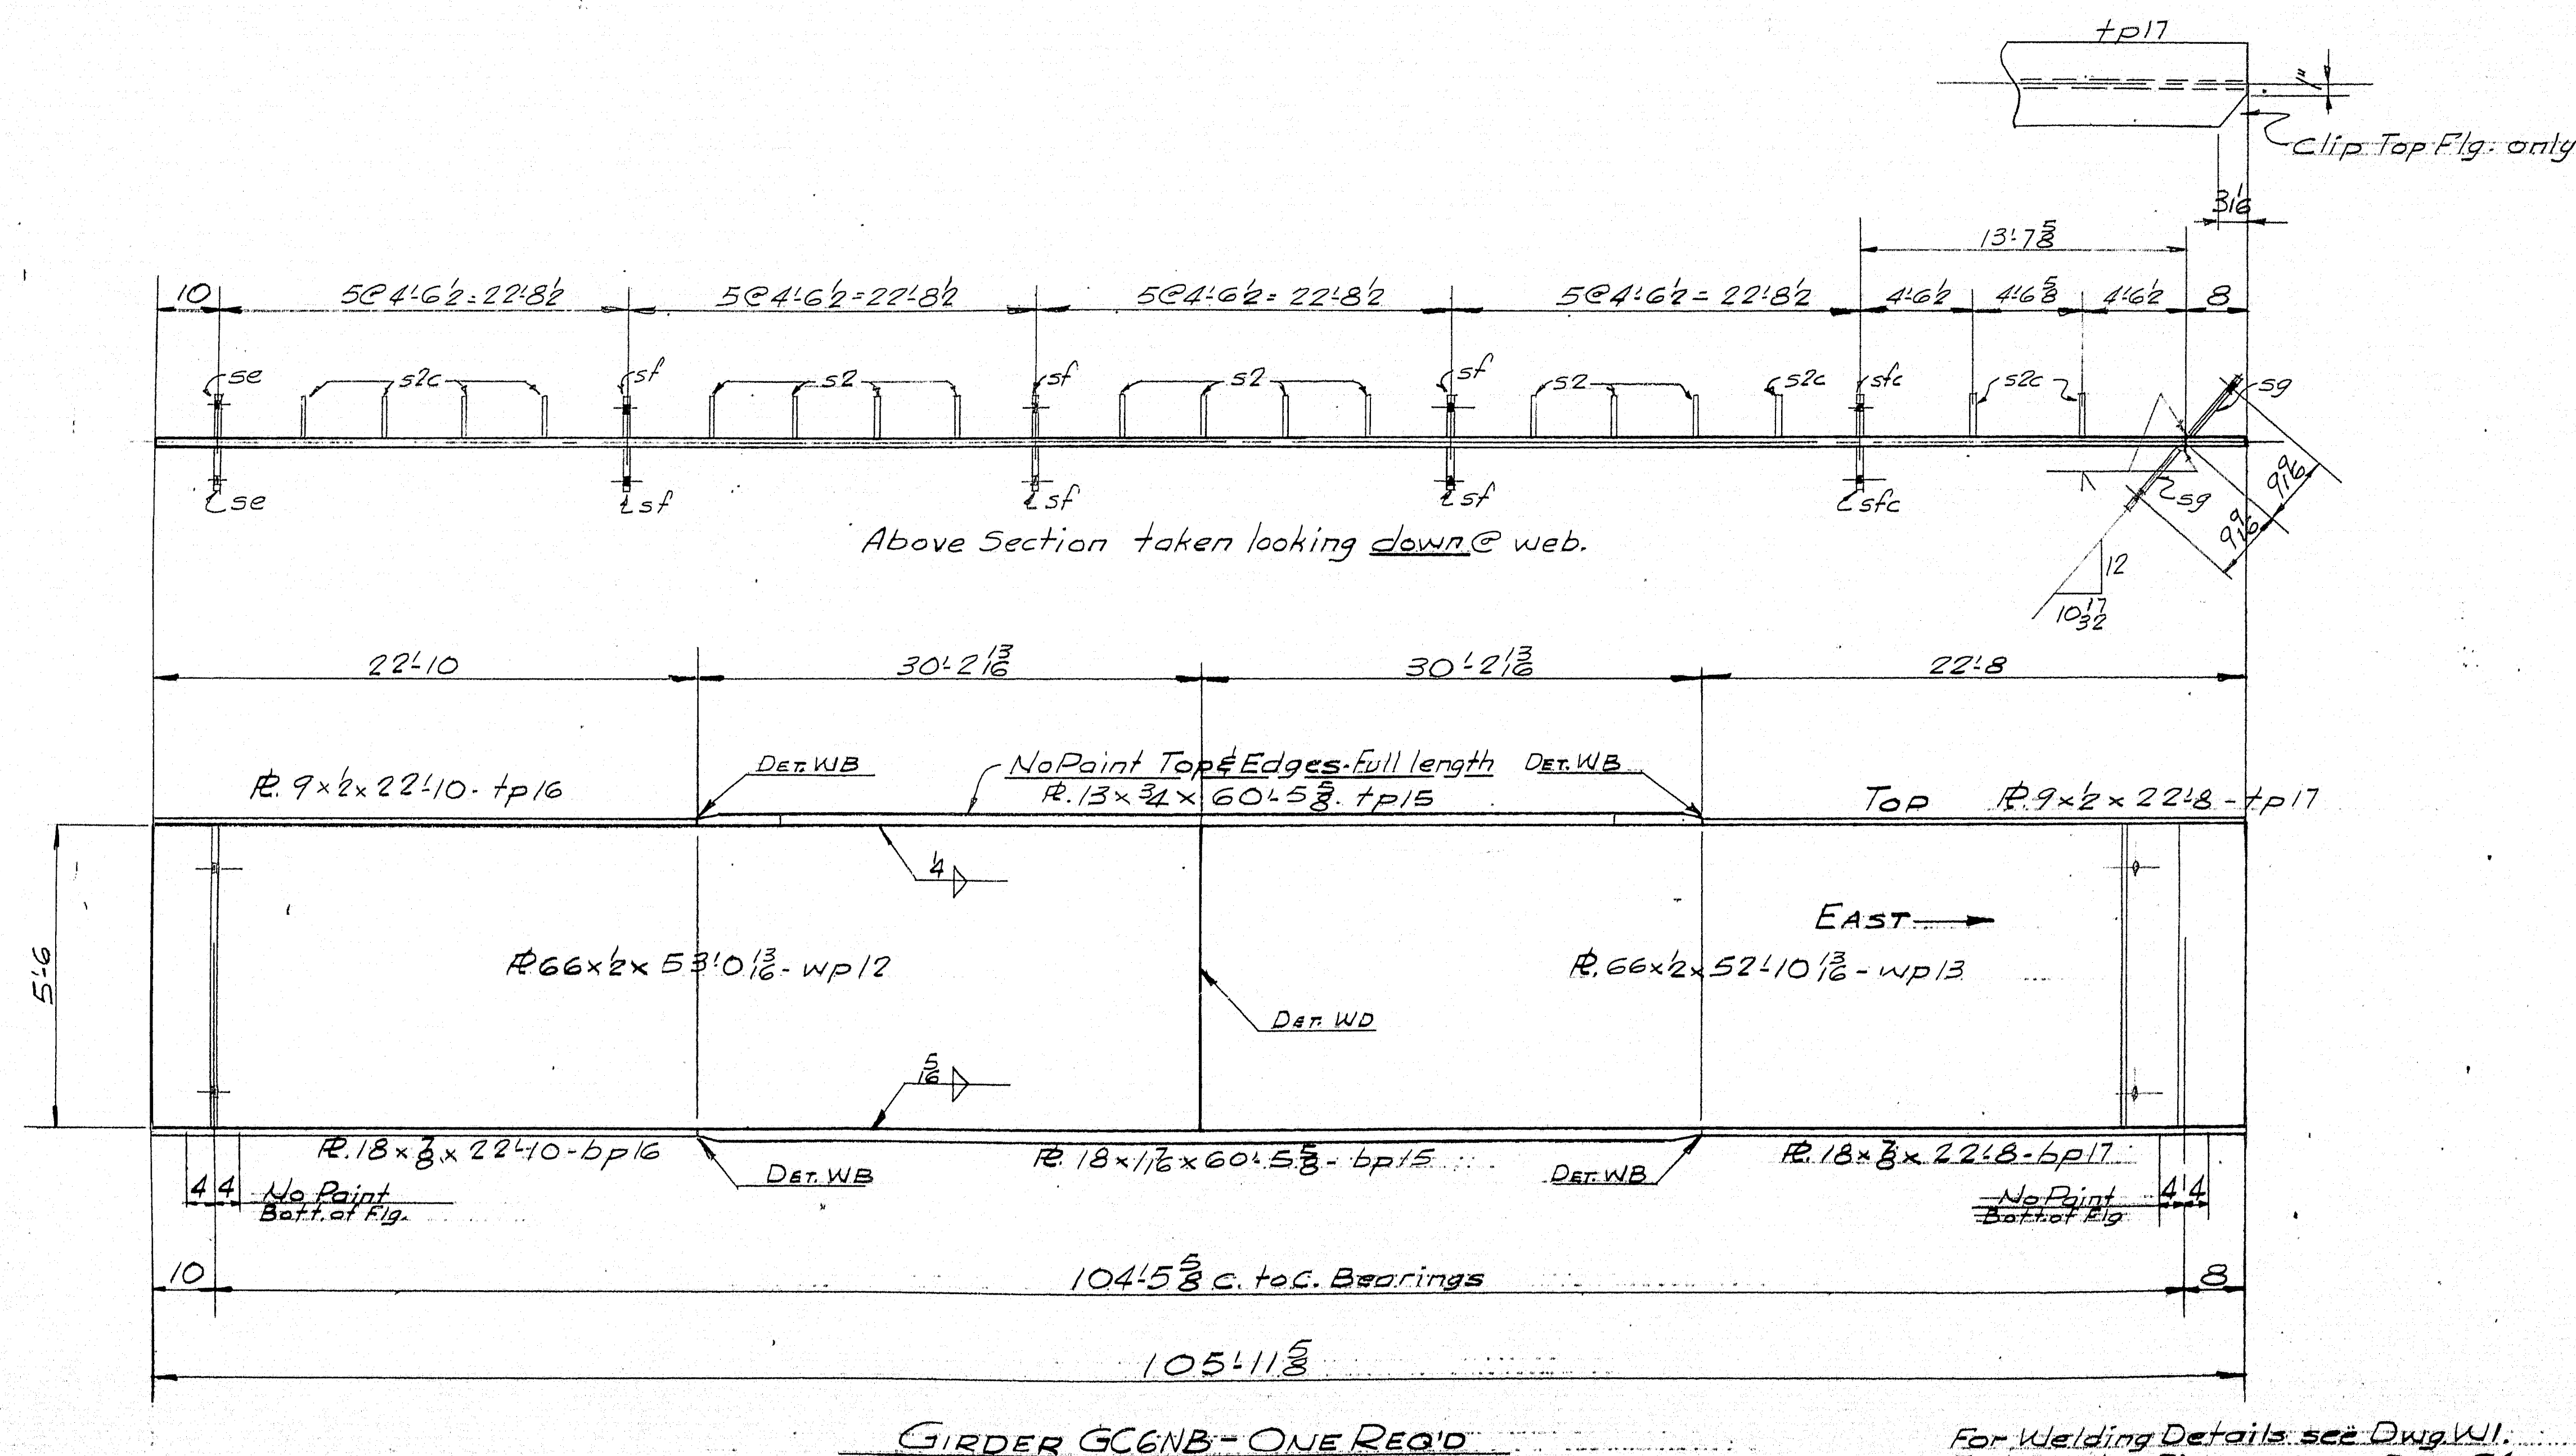 tp17
1"
Clip Top Flg. only
3 1/16
13'-7 5/8
10 5@4'-6 1/2=22'-8 1/2 5@4'-6 1/2=22'-8 1/2 5@4'-6 1/2=22'-8 1/2 5@4'-6 1/2=22'-8 1/2 4'-6 1/2 4'-6 5/8 4'-6 1/2 8
se s2c sf s2 sf s2 sf s2 s2c sfc s2c sg
se sf sf sf sfc sg
9 9/16
9 9/16
Above Section taken looking down @ web.
12
10 17/32
22'-10 30'-2 13/16 30'-2 13/16 22'-8
DET. WB No Paint Top & Edges-Full length DET. WB
PL. 9 x 1/2 x 22'-10 - tp16 PL. 13 x 3/4 x 60'-5 5/8 - tp15 Top PL. 9 x 1/2 x 22'-8 - tp17
1/4
EAST
5'-6
PL 66 x 1/2 x 53'-0 13/16 - wp12 PL. 66 x 1/2 x 52'-10 13/16 - wp13
DET. WD
5/16
PL. 18 x 7/8 x 22'-10 - bp16 PL. 18 x 1 7/16 x 60'-5 5/8 - bp15 PL. 18 x 7/8 x 22'-8 - bp17
DET. WB DET. WB
4 4 No Paint
Bott. of Flg.
No Paint 4 4
Bott. of Flg
10 104'-5 5/8 c. to c. Bearings 8
105'-11 5/8
GIRDER GC6NB - ONE REQ'D
For Welding Details see Dwg. W1.